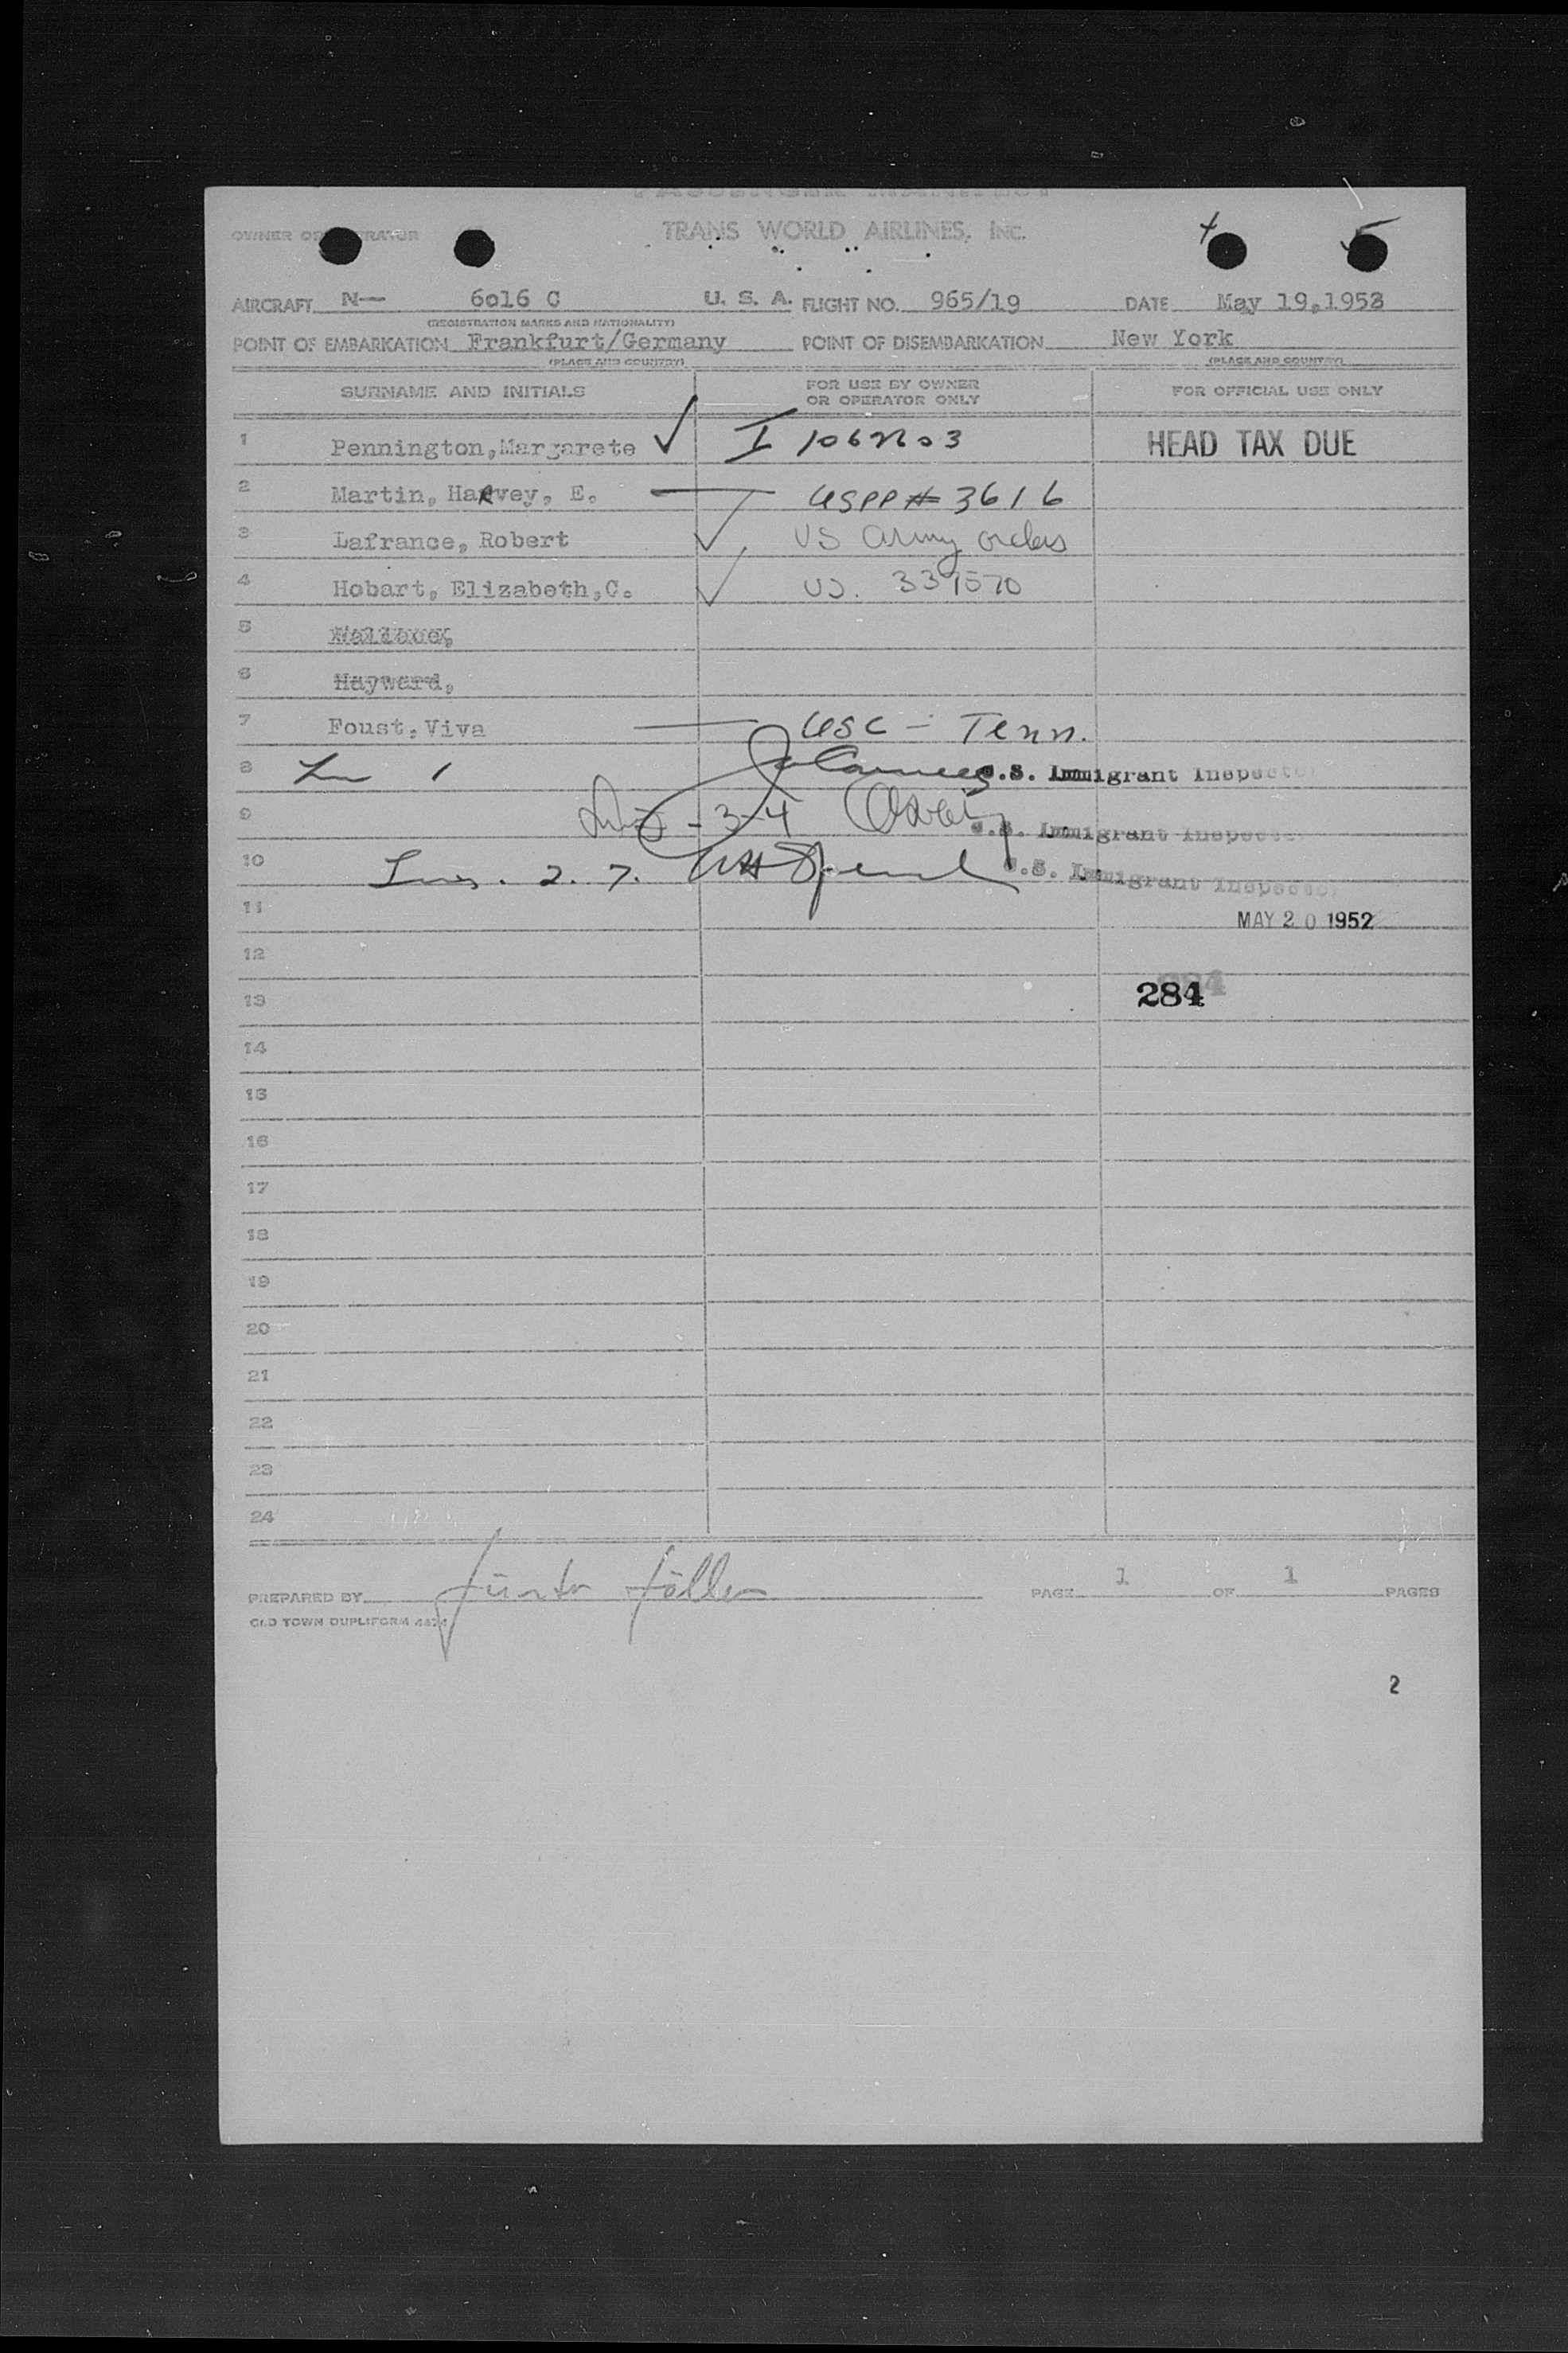 TRANS WORLD AIRLINES, INC.
OWNER OR OPERATOR
AIRCRAFT N— 6016 C U. S. A. FLIGHT NO. 965/19 DATE May 19,1952
(REGISTRATION MARKS AND NATIONALITY)
POINT OF EMBARKATION Frankfurt/Germany POINT OF DISEMBARKATION New York
(PLACE AND COUNTRY) (PLACE AND COUNTRY)
SURNAME AND INITIALS FOR USE BY OWNER OR OPERATOR ONLY FOR OFFICIAL USE ONLY
1 Pennington,Margarete ✓ I HEAD TAX DUE
2 Martin, HaRvey, E. — USPP# 3616
3 Lafrance, Robert ✓ US Army orders
4 Hobart, Elizabeth,C. ✓ US.
5 Wallace,
6 Hayward,
7 Foust,Viva — USC – Tenn.
8 1 U.S. Immigrant Inspector
9 - 3-4 U.S. Immigrant Inspector
10 Ins. 2. 7. U.S. Immigrant Inspector
11 MAY 20 1952
12
13 284
14
15
16
17
18
19
20
21
22
23
24
PREPARED BY PAGE 1 OF 1 PAGES
OLD TOWN DUPLIFORM
2